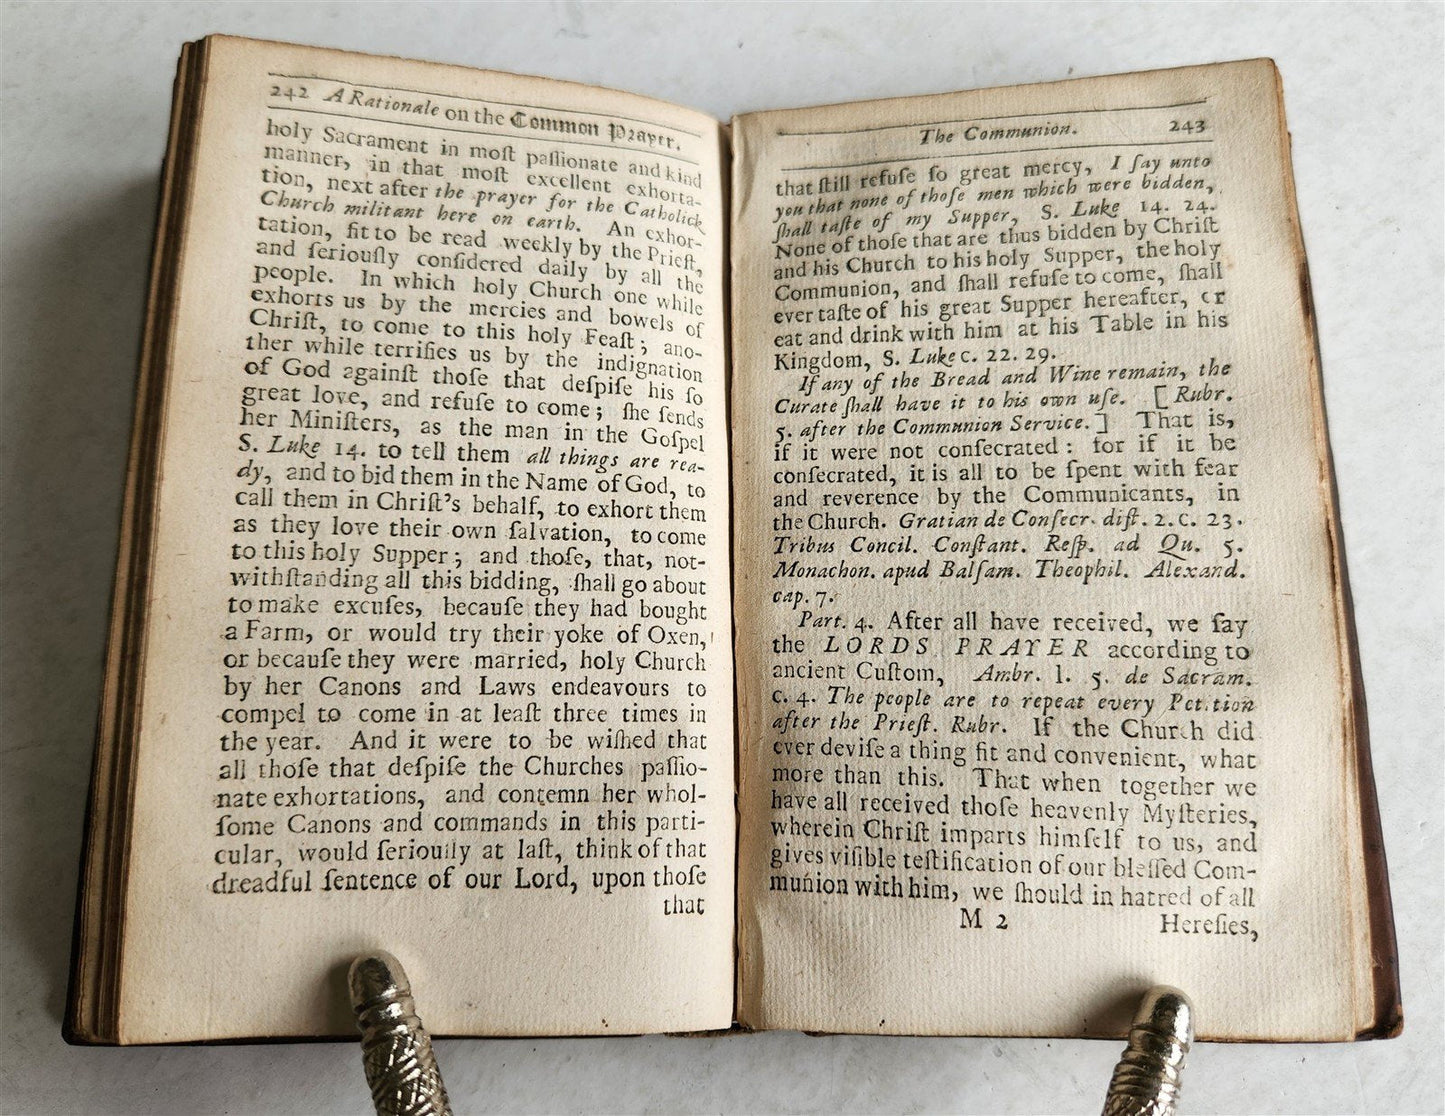 242 A Rationale on the Common Prayer.
holy Sacrament in moſt paſſionate and kind
manner, in that moſt excellent exhorta-
tion, next after the prayer for the Catholick
Church militant here on earth. An exhor-
tation, fit to be read weekly by the Prieſt,
and ſeriouſly conſidered daily by all the
people. In which holy Church one while
exhorts us by the mercies and bowels of
Chriſt, to come to this holy Feaſt; ano-
ther while terrifies us by the indignation
of God againſt thoſe that deſpiſe his ſo
great love, and refuſe to come; ſhe ſends
her Miniſters, as the man in the Goſpel
S. Luke 14. to tell them all things are rea-
dy, and to bid them in the Name of God, to
call them in Chriſt's behalf, to exhort them
as they love their own ſalvation, to come
to this holy Supper; and thoſe, that, not-
withſtanding all this bidding, ſhall go about
to make excuſes, becauſe they had bought
a Farm, or would try their yoke of Oxen,
or becauſe they were married, holy Church
by her Canons and Laws endeavours to
compel to come in at leaſt three times in
the year. And it were to be wiſhed that
all thoſe that deſpiſe the Churches paſſio-
nate exhortations, and contemn her whol-
ſome Canons and commands in this parti-
cular, would ſeriouſly at laſt, think of that
dreadful ſentence of our Lord, upon thoſe
that
The Communion. 243
that ſtill refuſe ſo great mercy, I ſay unto
you that none of thoſe men which were bidden,
ſhall taſte of my Supper, S. Luke 14. 24.
None of thoſe that are thus bidden by Chriſt
and his Church to his holy Supper, the holy
Communion, and ſhall refuſe to come, ſhall
ever taſte of his great Supper hereafter, or
eat and drink with him at his Table in his
Kingdom, S. Luke c. 22. 29.
If any of the Bread and Wine remain, the
Curate ſhall have it to his own uſe. [Rubr.
5. after the Communion Service.] That is,
if it were not conſecrated: for if it be
conſecrated, it is all to be ſpent with fear
and reverence by the Communicants, in
the Church. Gratian de Conſecr. diſt. 2. c. 23.
Tribus Concil. Conſtant. Reſp. ad Qu. 5.
Monachon. apud Balſam. Theophil. Alexand.
cap. 7.
Part. 4. After all have received, we ſay
the LORDS PRAYER according to
ancient Cuſtom, Ambr. l. 5. de Sacram.
c. 4. The people are to repeat every Petition
after the Prieſt. Rubr. If the Church did
ever deviſe a thing fit and convenient, what
more than this. That when together we
have all received thoſe heavenly Myſteries,
wherein Chriſt imparts himſelf to us, and
gives viſible teſtification of our bleſſed Com-
munion with him, we ſhould in hatred of all
M 2 Hereſies,